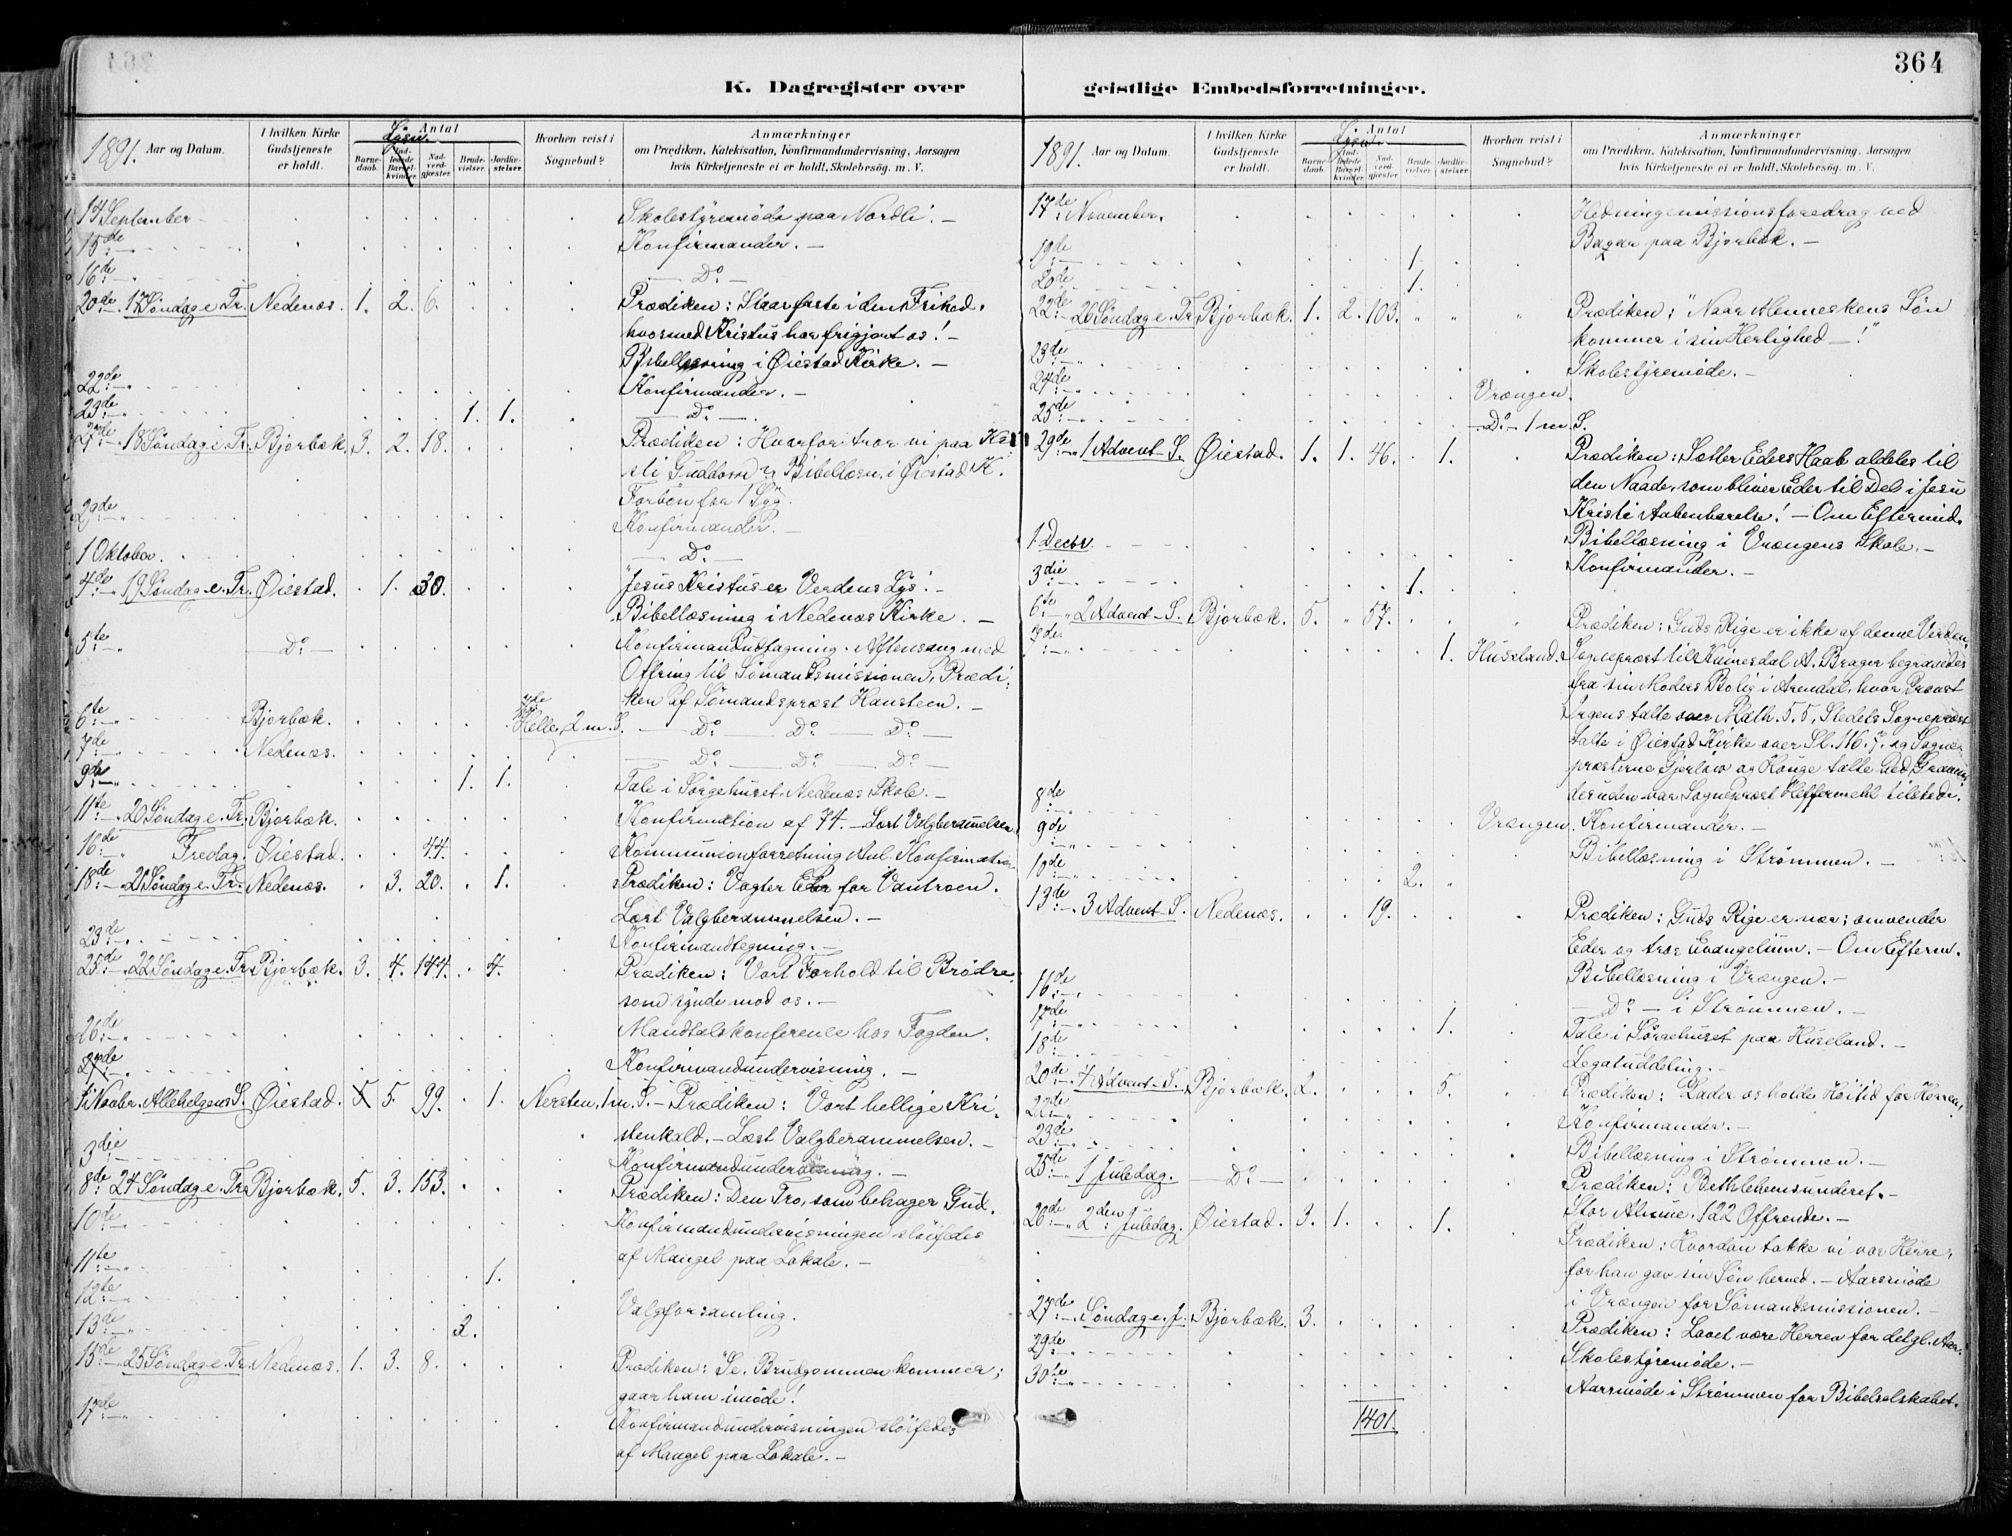 364
K. Dagregister over geistlige Embedsforretninger.
1891. Aar og Datum.
I hvilken Kirke Gudstjeneste er holdt.
Antal
Lysn.
Barnedaab.
Indledede Barselkvinder.
Nadverdgjæster.
Brudevielser.
Jordfæstelser.
Hvorhen reist i Sognebud?
Anmærkninger
om Prædiken, Katekisation, Konfirmandundervisning, Aarsagen
hvis Kirketjeneste ei er holdt, Skolebesøg. m. V.
14 September Skolestyremøde paa Nordli. —
15de Konfirmander. —
16de — Do —
20de 17 Søndag e. Tr. Nedenæs. 1. 2. 6. Prædiken: Staar faste i den Frihed,
hvormed Kristus har frigjort os! —
Bibellæsning i Øiestad Kirke. —
22de Konfirmander. —
23de 1. 1. — Do —
27de 18 Søndag e. Tr. Bjorbæk. 3. 2. 18. Prædiken: Hvorfor tror vi paa Kri
sti Guddom? Bibellæsn. i Øiestad K.
Forbøn for 1 Syg.
29de Konfirmander. —
1 Oktober. — Do —
4de 19 Søndag e. Tr. Øiestad. 1. 30. "Jesus Kristus er Verdens Lys! —
Bibellæsning i Nedenæs Kirke. —
5te — Do — Konfirmandudtagning. Aftensang med
Offring til Sømandsmissionen, Prædi-
ken af Sømandspræst Hansteen. —
6te Bjorbæk. 7de Helle, 2 m. S. — Do — Do — Do —
7de Nedenæs. — Do — Do — Do —
9de 1. 1. Tale i Sørgehuset Nedenæs Skole. —
11te 20 Søndag e. Tr. Bjorbæk. Konfirmation af 74. — Læst Valgberammelsen.
16de Fredag. Øiestad. 44. Kommunionforretning Anl. Konfirmation
18de 21 Søndag e. Tr. Nedenæs. 3. 20. 1. Prædiken: Vogter Eder for Vantroen.
Læst Valgberammelsen. —
23de Konfirmandtegning. —
25de 22 Søndag e. Tr. Bjorbæk. 3. 4. 144. 4. Prædiken: Vort Forhold til Brødre,
som synde mod os. —
26de Mandtalskonference hos Fogden.
27de Konfirmandundervisning. —
1 Novbr. Allehelgens S. Øiestad. 5 5. 99. 1. Nersten, 1 m. S. — Prædiken: Vort hellige Kri-
stenkald. — Læst Valgberammelsen. —
3die Konfirmandundervisning. —
8de 24 Søndag e. Tr. Bjorbæk. 5. 3. 153. Prædiken: Den Tro, som behager Gud.
10de Konfirmandundervisningen sløifedes
af Mangel paa Lokale. —
11te 1.
12te Valgforsamling.
13de 2.
15de 25 Søndag e. Tr. Nedenæs. 1. 3. 8. Prædiken: "Se, Brudgommen kommer;
gaar ham imøde!
17de Konfirmandundervisningen sløifedes
af Mangel paa Lokale. —
1891. Aar og Datum.
I hvilken Kirke Gudstjeneste er holdt.
Antal
Lysn.
Barnedaab.
Indledede Barselkvinder.
Nadverdgjæster.
Brudevielser.
Jordfæstelser.
Hvorhen reist i Sognebud?
Anmærkninger
om Prædiken, Katekisation, Konfirmandundervisning, Aarsagen
hvis Kirketjeneste ei er holdt, Skolebesøg. m. V.
17de November. Hedningemissionsforedrag ved
paa Bjorbæk. —
19de 1.
20de 1.
22de 26 Søndag e. Tr. Bjorbæk. 1. 2. 103. Prædiken: "Naar Menneskens Søn
kommer i sin Herlighed —!"
23de Skolestyremøde. —
24de Vrængen.
25de — Do — 1 m. S.
29de 1 Advent-S. Øiestad. 1. 1. 46. 1. Prædiken: Sætter Eders Haab aldeles til
den Naade, som bliver Eder til Del i Jesu
Kristi Aabenbarelse! — Om Eftermid.
Bibellæsning i Vrængens Skole. —
1 Decbr. Konfirmander. —
3die 1.
6te 2 Advent-S. Bjorbæk. 5. 57. Prædiken: Guds Rige er ikke af denne Verden.
7de 1. Huseland. Sognepræst til Kvinesdal A. Brager begravedes
fra sin Moders Bolig i Arendal, hvor Provst
talte over Math. 5. 5, Stedets Sognepræst
talte i Øiestad Kirke over Sl. 116. 7. og Sogne-
præsterne Gjerløw og Houge talte ved Graven;
desuden var Sognepræst Heffermehl tilstede.
8de Vrængen. Konfirmander. —
9de Bibellæsning i Strømmen. —
10de 2.
13de 3 Advent-S. Nedenæs. 19. Prædiken: Guds Rige er nær; omvender
Eder og tror Evangelium. — Om Efterm.
Bibellæsning i Vrængen. —
16de — Do — i Strømmen. —
17de 1. Tale i Sørgehuset paa Huseland. —
18de Legatuddeling. —
20de 4 Advent-S. Bjorbæk. 2. 5. Prædiken: Lader os holde Høitid for Herren,
22de Konfirmander. —
23de Bibellæsning i Strømmen. —
25de 1 Juledag. — Do — Prædiken: Bethlehemsunderet. —
Stor Almue. 122 Offrende. —
26de 2den Juledag. Øiestad. 3. 1. 1. Prædiken: Hvordan takke vi vor Herre,
for han gav sin Søn herned. — Aarsmøde
i Vrængen for Sømandsmissionen. —
27de Søndag e. J. Bjorbæk. 3. Prædiken: Lovet være Herren for det gl. Aar.
29de Skolestyremøde. —
30te Aarsmøde i Strømmen for Bibelselskabet.
1401.